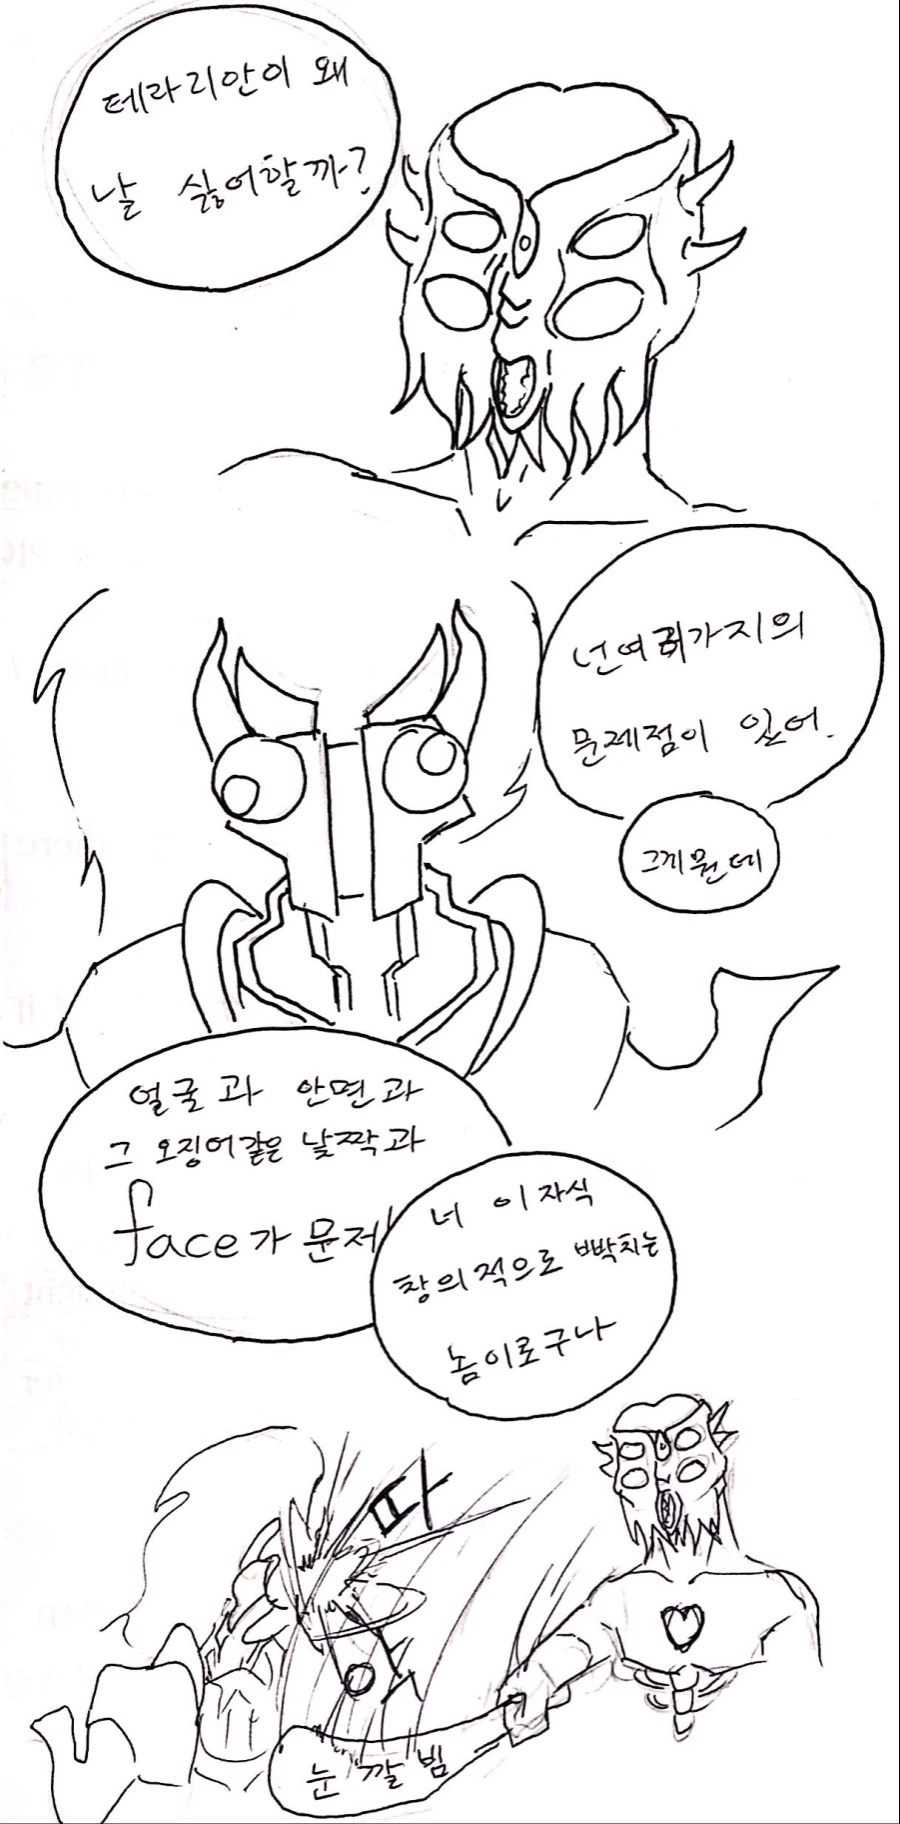 테라리안이 왜
날 싫어할까?
넌 여러가지의
문제점이 있어.
그게 뭔데
얼굴과 안면과
그 오징어같은 낯짝과
face가 문제
너 이 자식
창의적으로 빡치는
놈이로구나
퍽
눈깔빔